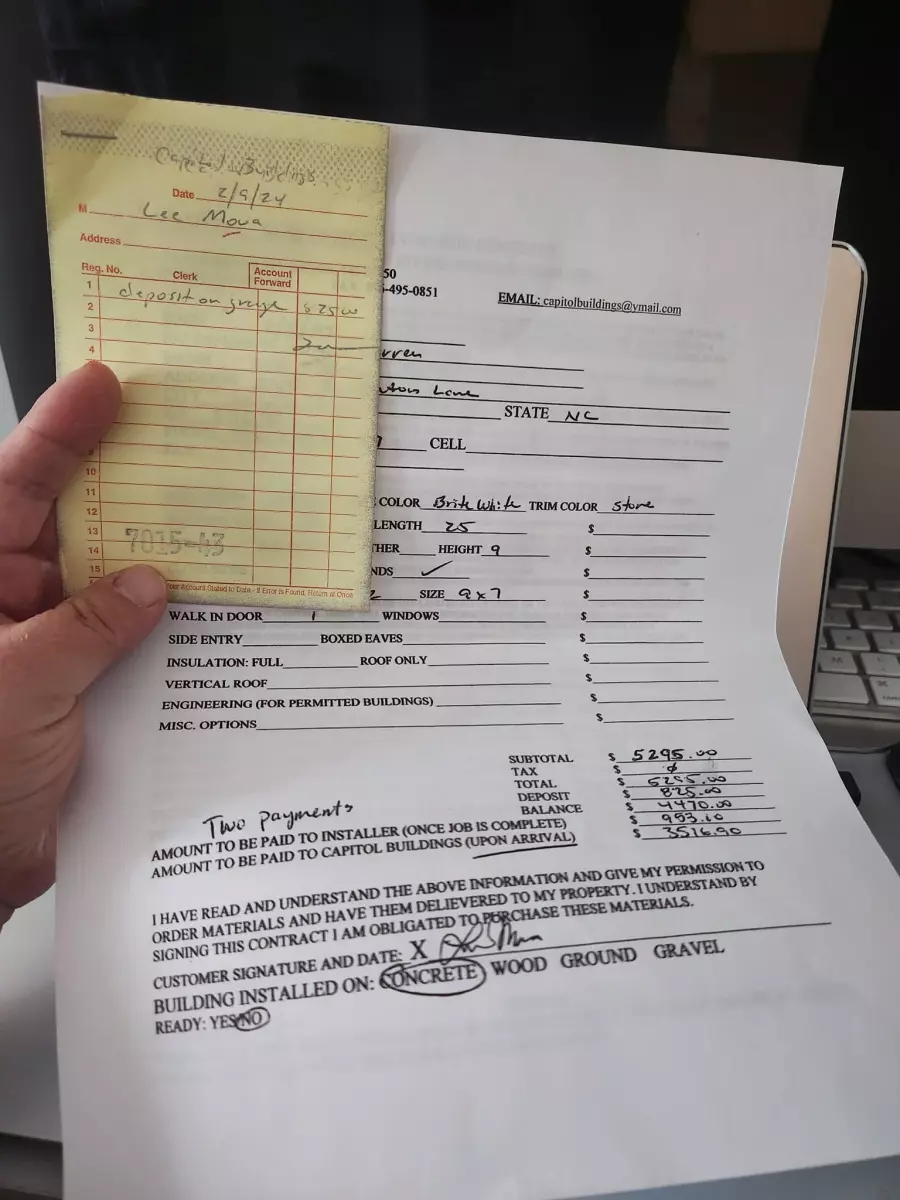 Capitol Buildings
Date 2/9/24
M Lee Moua
Address
Reg. No. Clerk Account Forward
1 deposit on
2
3
4
9
10
11
12
13
14
15
7015-43
Your Account Stated to Date - If Error is Found, Return at Once
50
-495-0851
EMAIL: capitolbuildings@ymail.com
rren
Lane
STATE NC
CELL
COLOR Brite White TRIM COLOR Stone
LENGTH 25 $
THER HEIGHT 9 $
NDS ✓ $
2 SIZE 9x7 $
WALK IN DOOR 1 WINDOWS $
SIDE ENTRY BOXED EAVES $
INSULATION: FULL ROOF ONLY $
VERTICAL ROOF $
ENGINEERING (FOR PERMITTED BUILDINGS) $
MISC. OPTIONS $
SUBTOTAL $ 5295.00
TAX $ ∅
TOTAL $ 5295.00
DEPOSIT $ 825.00
BALANCE $ 4470.00
Two payments
AMOUNT TO BE PAID TO INSTALLER (ONCE JOB IS COMPLETE) $ 953.10
AMOUNT TO BE PAID TO CAPITOL BUILDINGS (UPON ARRIVAL) $ 3516.90
I HAVE READ AND UNDERSTAND THE ABOVE INFORMATION AND GIVE MY PERMISSION TO
ORDER MATERIALS AND HAVE THEM DELIEVERED TO MY PROPERTY. I UNDERSTAND BY
SIGNING THIS CONTRACT I AM OBLIGATED TO PURCHASE THESE MATERIALS.
CUSTOMER SIGNATURE AND DATE: X
BUILDING INSTALLED ON: CONCRETE WOOD GROUND GRAVEL
READY: YES NO